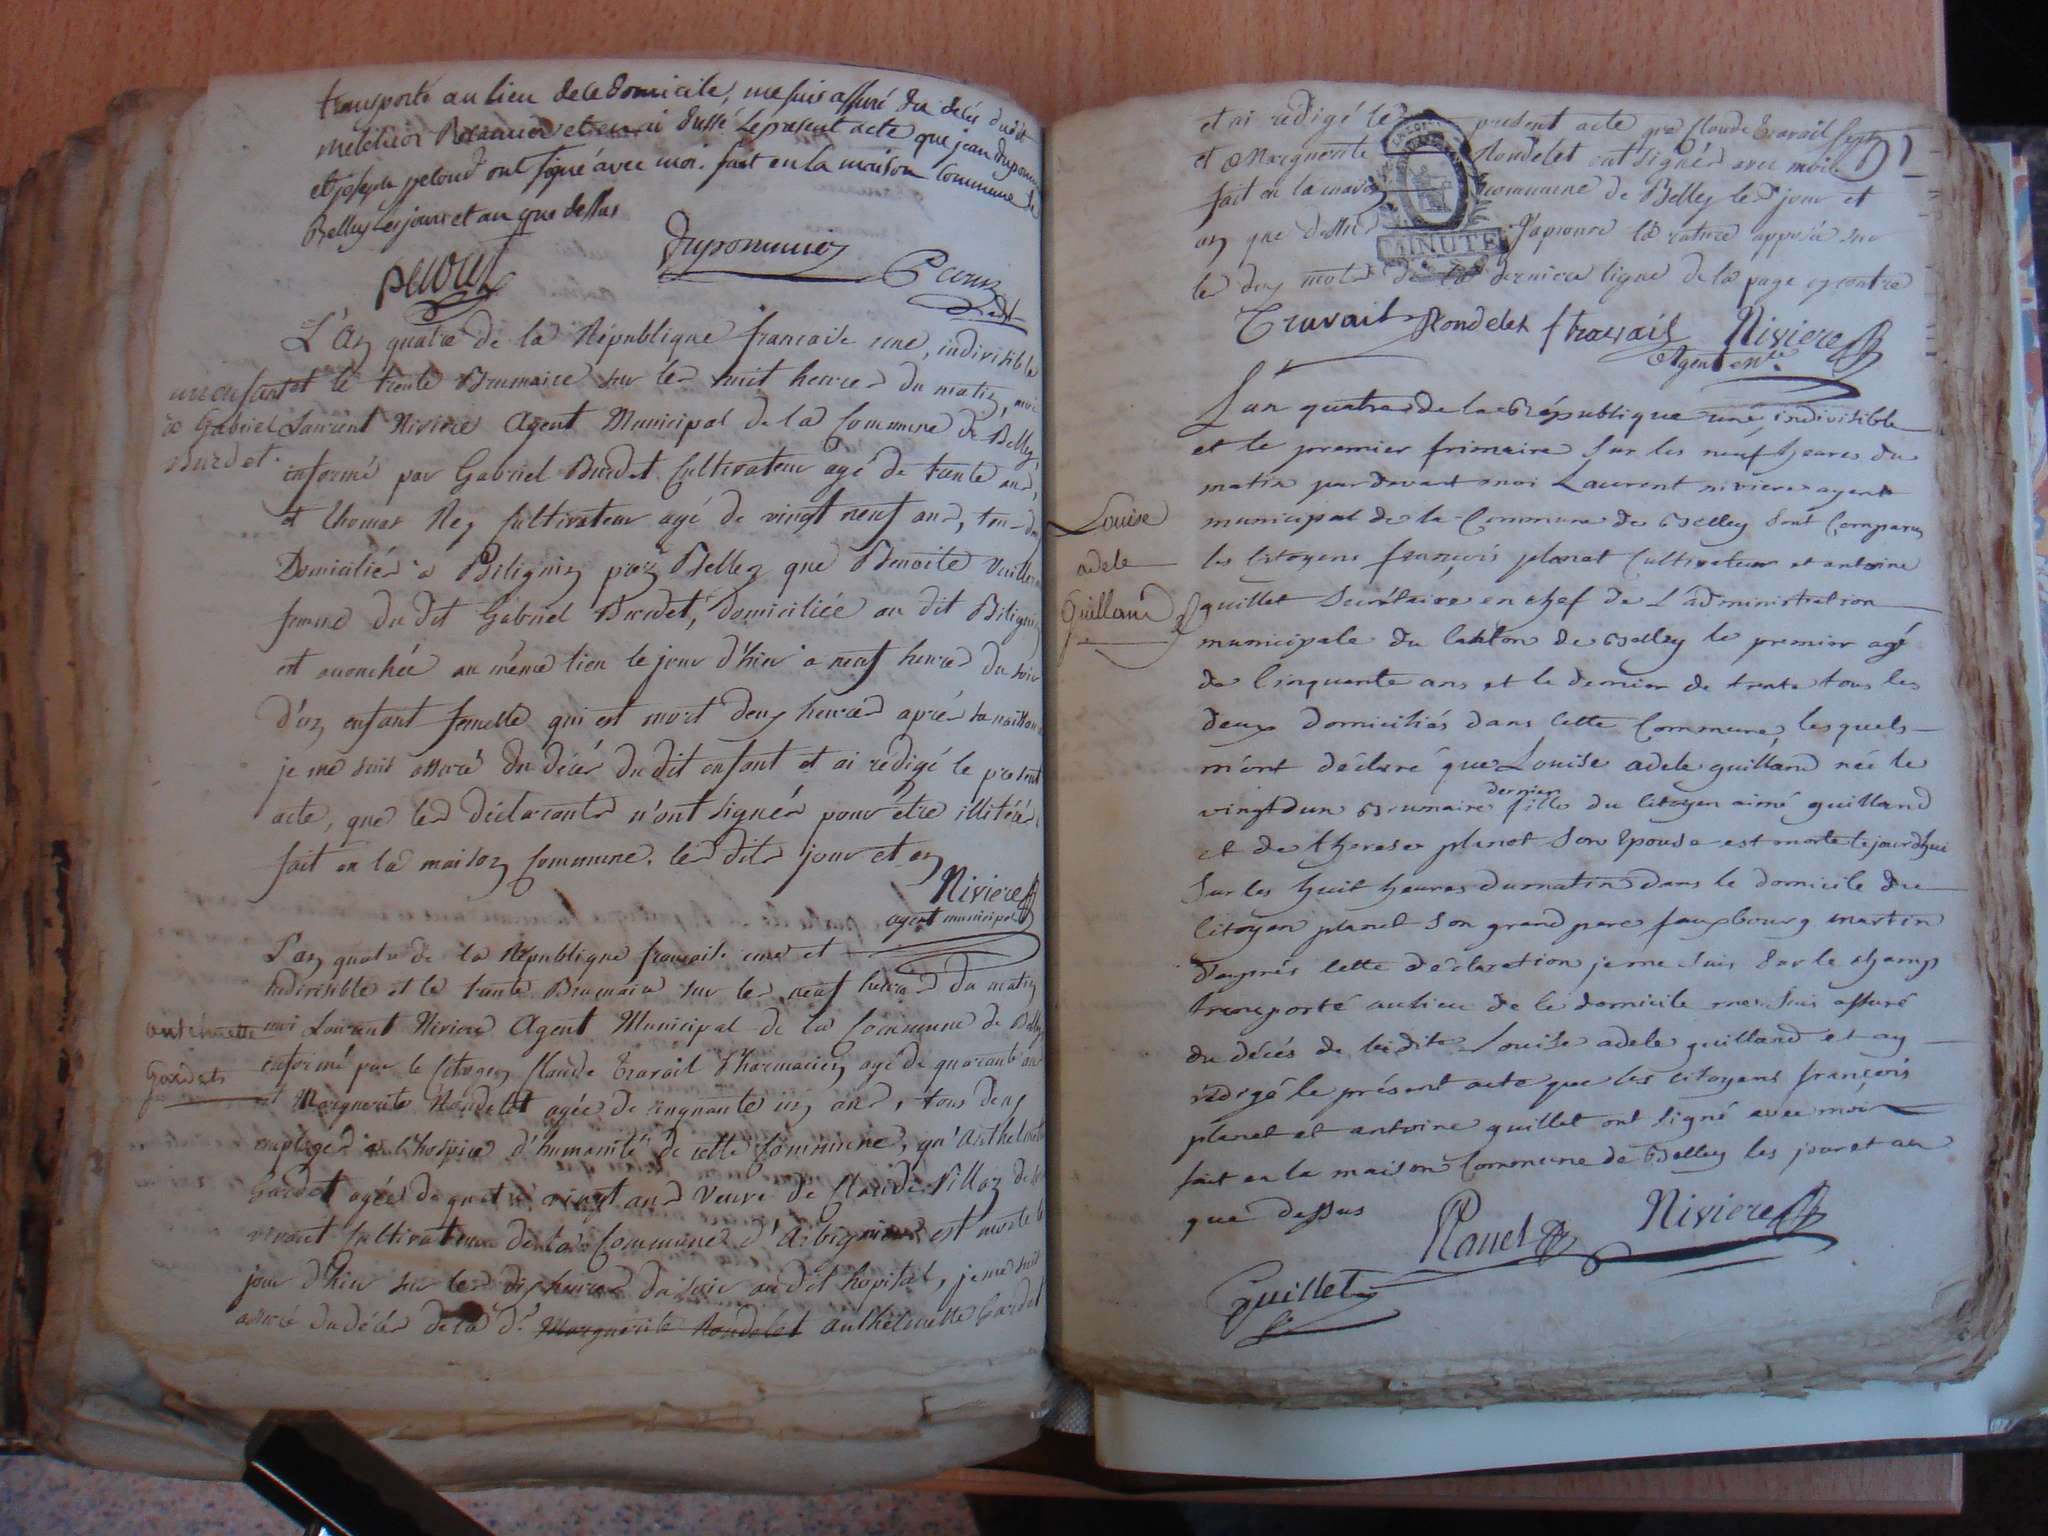 transporté au lieu de le domicile, me suis assuré du décès dudit
melchior et en ai dussé le present acte que jean dupommier
et joseph peloud ont signé avec moi. fait en la maison commune de
Belley les jour et an que dessus
peloud
Dupommier
L'an quatre de la République francaise une, indivisible
et le trente Brumaire sur les huit heures du matin, moi
un enfant
à Gabriel
Burdet.
Laurent Niviere Agent Municipal de la Commune de Belley,
informé par Gabriel Burdet Cultivateur agé de trente ans,
et Thomas Rey Cultivateur agé de vingt neuf ans, tous deux
Domiciliés à Billignin près Belley que Benoite
femme du dit Gabriel Burdet, domiciliée au dit Billignin
est acouchée au même lieu le jour d'hier à neuf heures du soir
d'un enfant femelle qui est mort deux heures après sa naissance
je me suis assuré du décès du dit enfant et ai rédigé le present
acte, que les déclarants n'ont signés pour être illitérés
fait en la maison Commune, les dits jour et an
Niviere
agent municipal
L'an quatre de la République francaise une et
indivisible et le trente Brumaire sur les neuf heures du matin
anthelmette
Gardet
moi Laurent Niviere Agent Municipal de la Commune de Belley
informé par le Citoyen Claude Travail Pharmacien agé de quarante ans
et Marguerite Rondelet agée de cinquante six ans, tous deux
employés à l'hospice d'humanité de cette Commune, qu'Anthelmette
Gardet agée de quatre vingt ans veuve de Claude Villaz de son
vivant Cultivateur de la Commune d'Arbignieu est morte le
jour d'hier sur les dix heures du soir au dit hopital, je me suis
assuré du décès de la dte Marguerite Rondelet anthelmette Gardet
et ai rédigé le present acte que Claude Travail
et Marguerite Rondelet ont signés avec moi.
fait en la maison commune de Belley les jour et
an que dessus J'aprouve la rature apposée sur
les deux mots de la derniere ligne de la page cy contre
MINUTE
Travail Rondelet f travail Niviere
Agent
L'an quatre de la République une, indivisible
et le premier frimaire sur les neuf heures du
matin pardevant moi Laurent niviere agent
municipal de la Commune de Belley sont Comparus
Louise
adele
Guilland
les citoyens françois planet Cultivateur et antoine
guillet Secrétaire en chef de L'administration
municipale du Canton de Belley le premier agé
de Cinquante ans et le dernier de trente tous les
deux domiciliés dans cette Commune, lesquels
m'ont déclaré que Louise adele guilland née le
dernier
vingtdun Brumaire fille du Citoyen aimé guilland
et de therese planet son Epouse est morte cejourdhui
Sur les huit heures du matin dans le domicile du
Citoyen planet son grand pere fauxbourg martin
d'après cette déclaration je me suis sur le champ
transporté au lieu de le domicile me suis assuré
du décès de ladite Louise adele guilland et ay
rédigé le présent acte que les citoyens françois
planet et antoine guillet ont signé avec moi
fait en la maison Commune de Belley les jour et an
que dessus
Planet
Niviere
Guillet